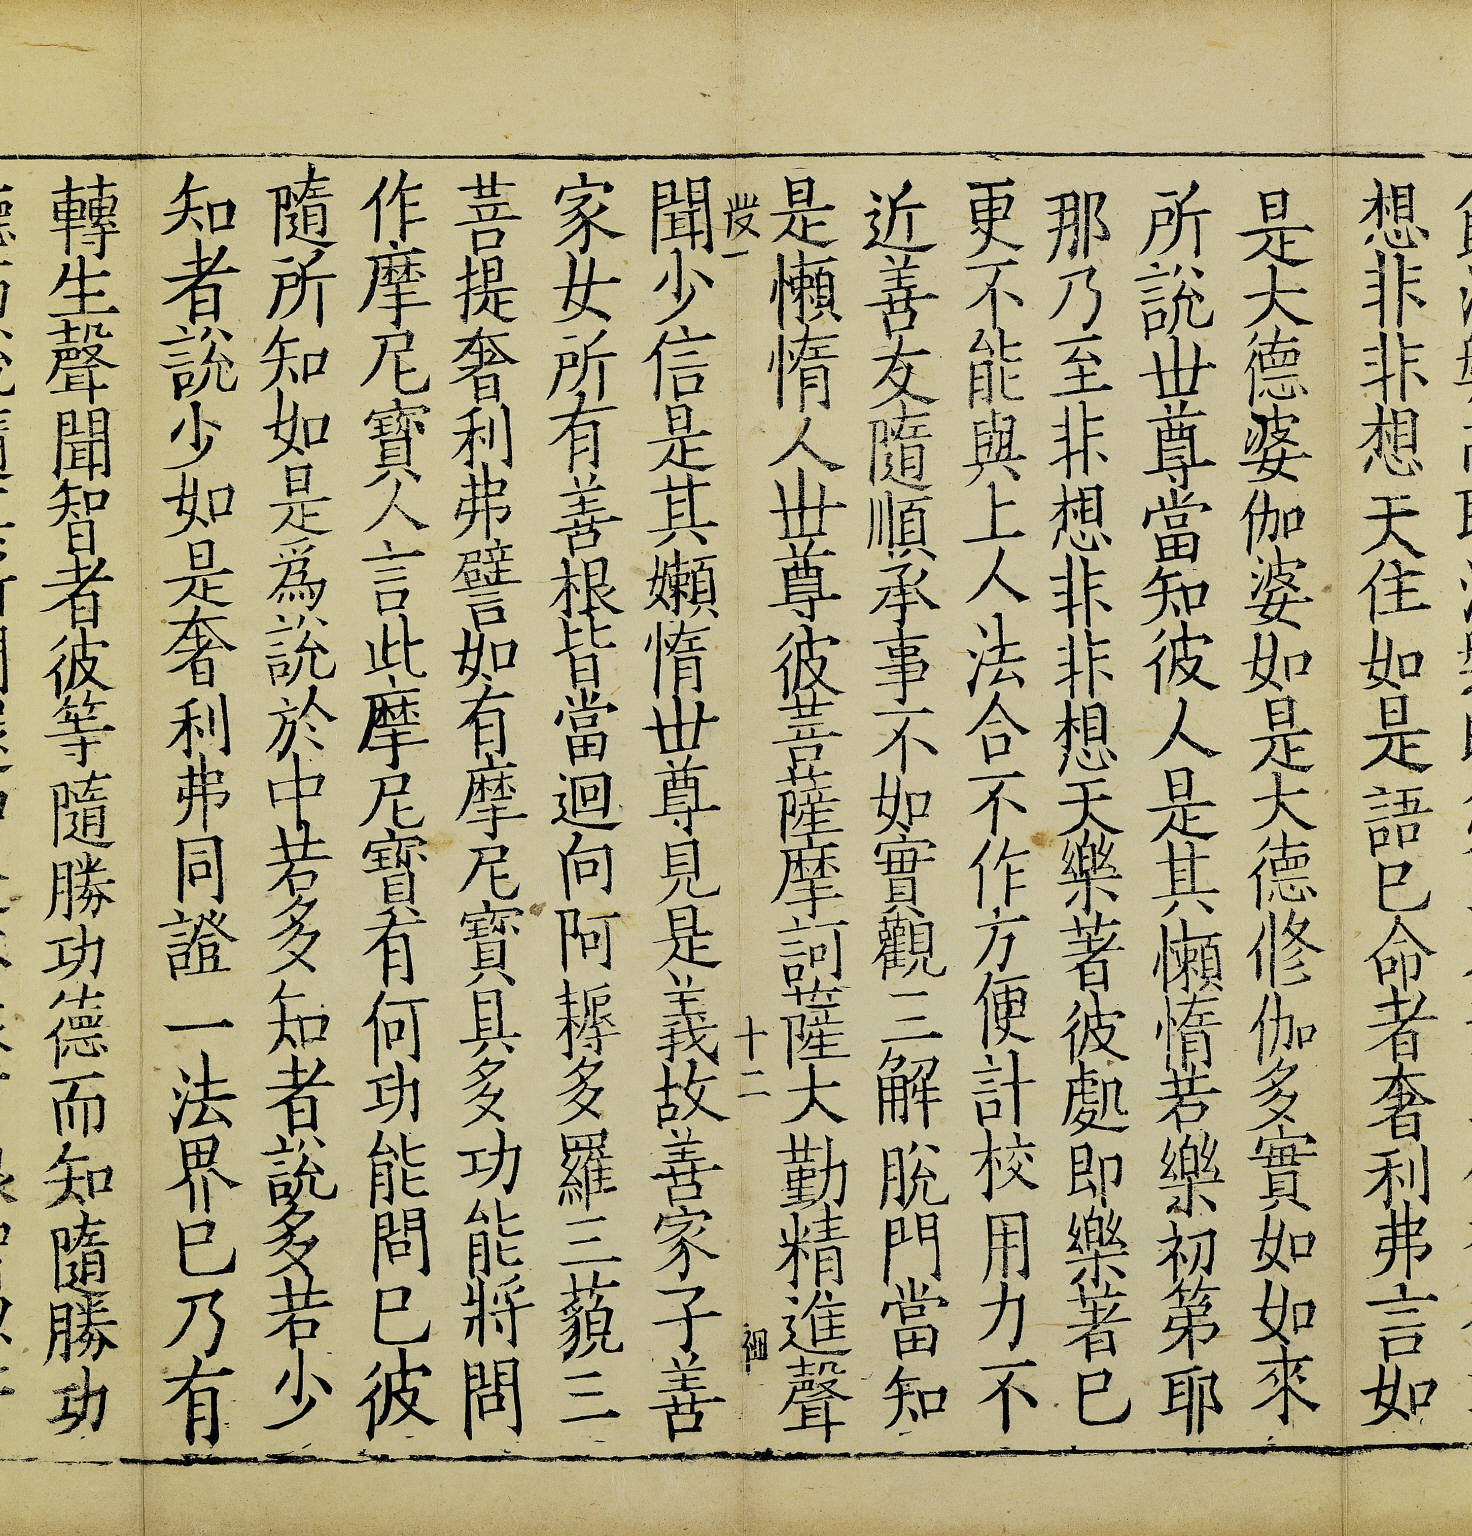 想非非想天住如是語已命者奢利弗言如
是大德婆伽婆如是大德修伽多實如如來
所說世尊當知彼人是其懶惰若樂初第耶
那乃至非想非非想天樂著彼處即樂著已
更不能與上人法合不作方便計校用力不
近善友隨順承事不如實觀三解脫門當知
是懶惰人世尊彼菩薩摩訶薩大勤精進聲
十二
聞少信是其嬾惰世尊見是義故善家子善
家女所有善根皆當迴向阿耨多羅三藐三
菩提奢利弗譬如有摩尼寶具多功能將問
作摩尼寶人言此摩尼寶有何功能問已彼
隨所知如是為說於中若多知者說多若少
知者說少如是奢利弗同證一法界已乃有
轉生聲聞智者彼等隨勝功德而知隨勝功